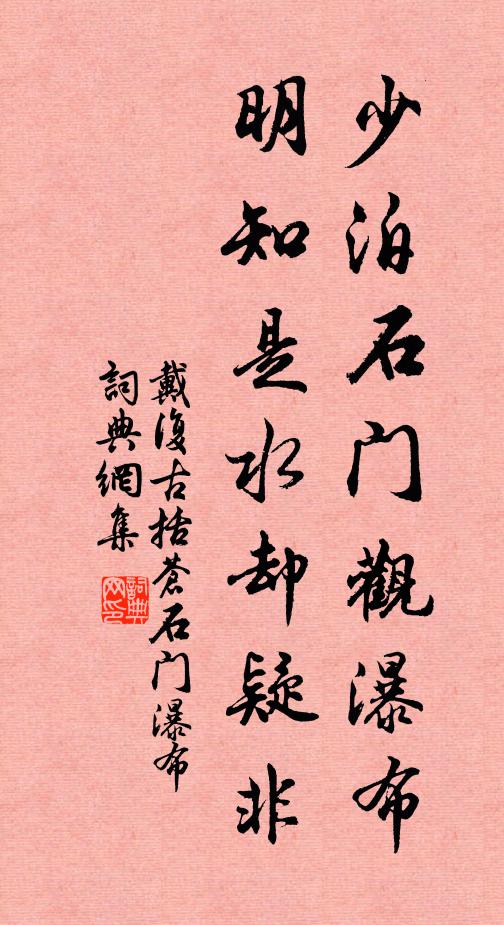 少泊石门觀瀑布
明知是水却疑非
戴復古括蒼石门瀑布
詞典網集
詞典
网印